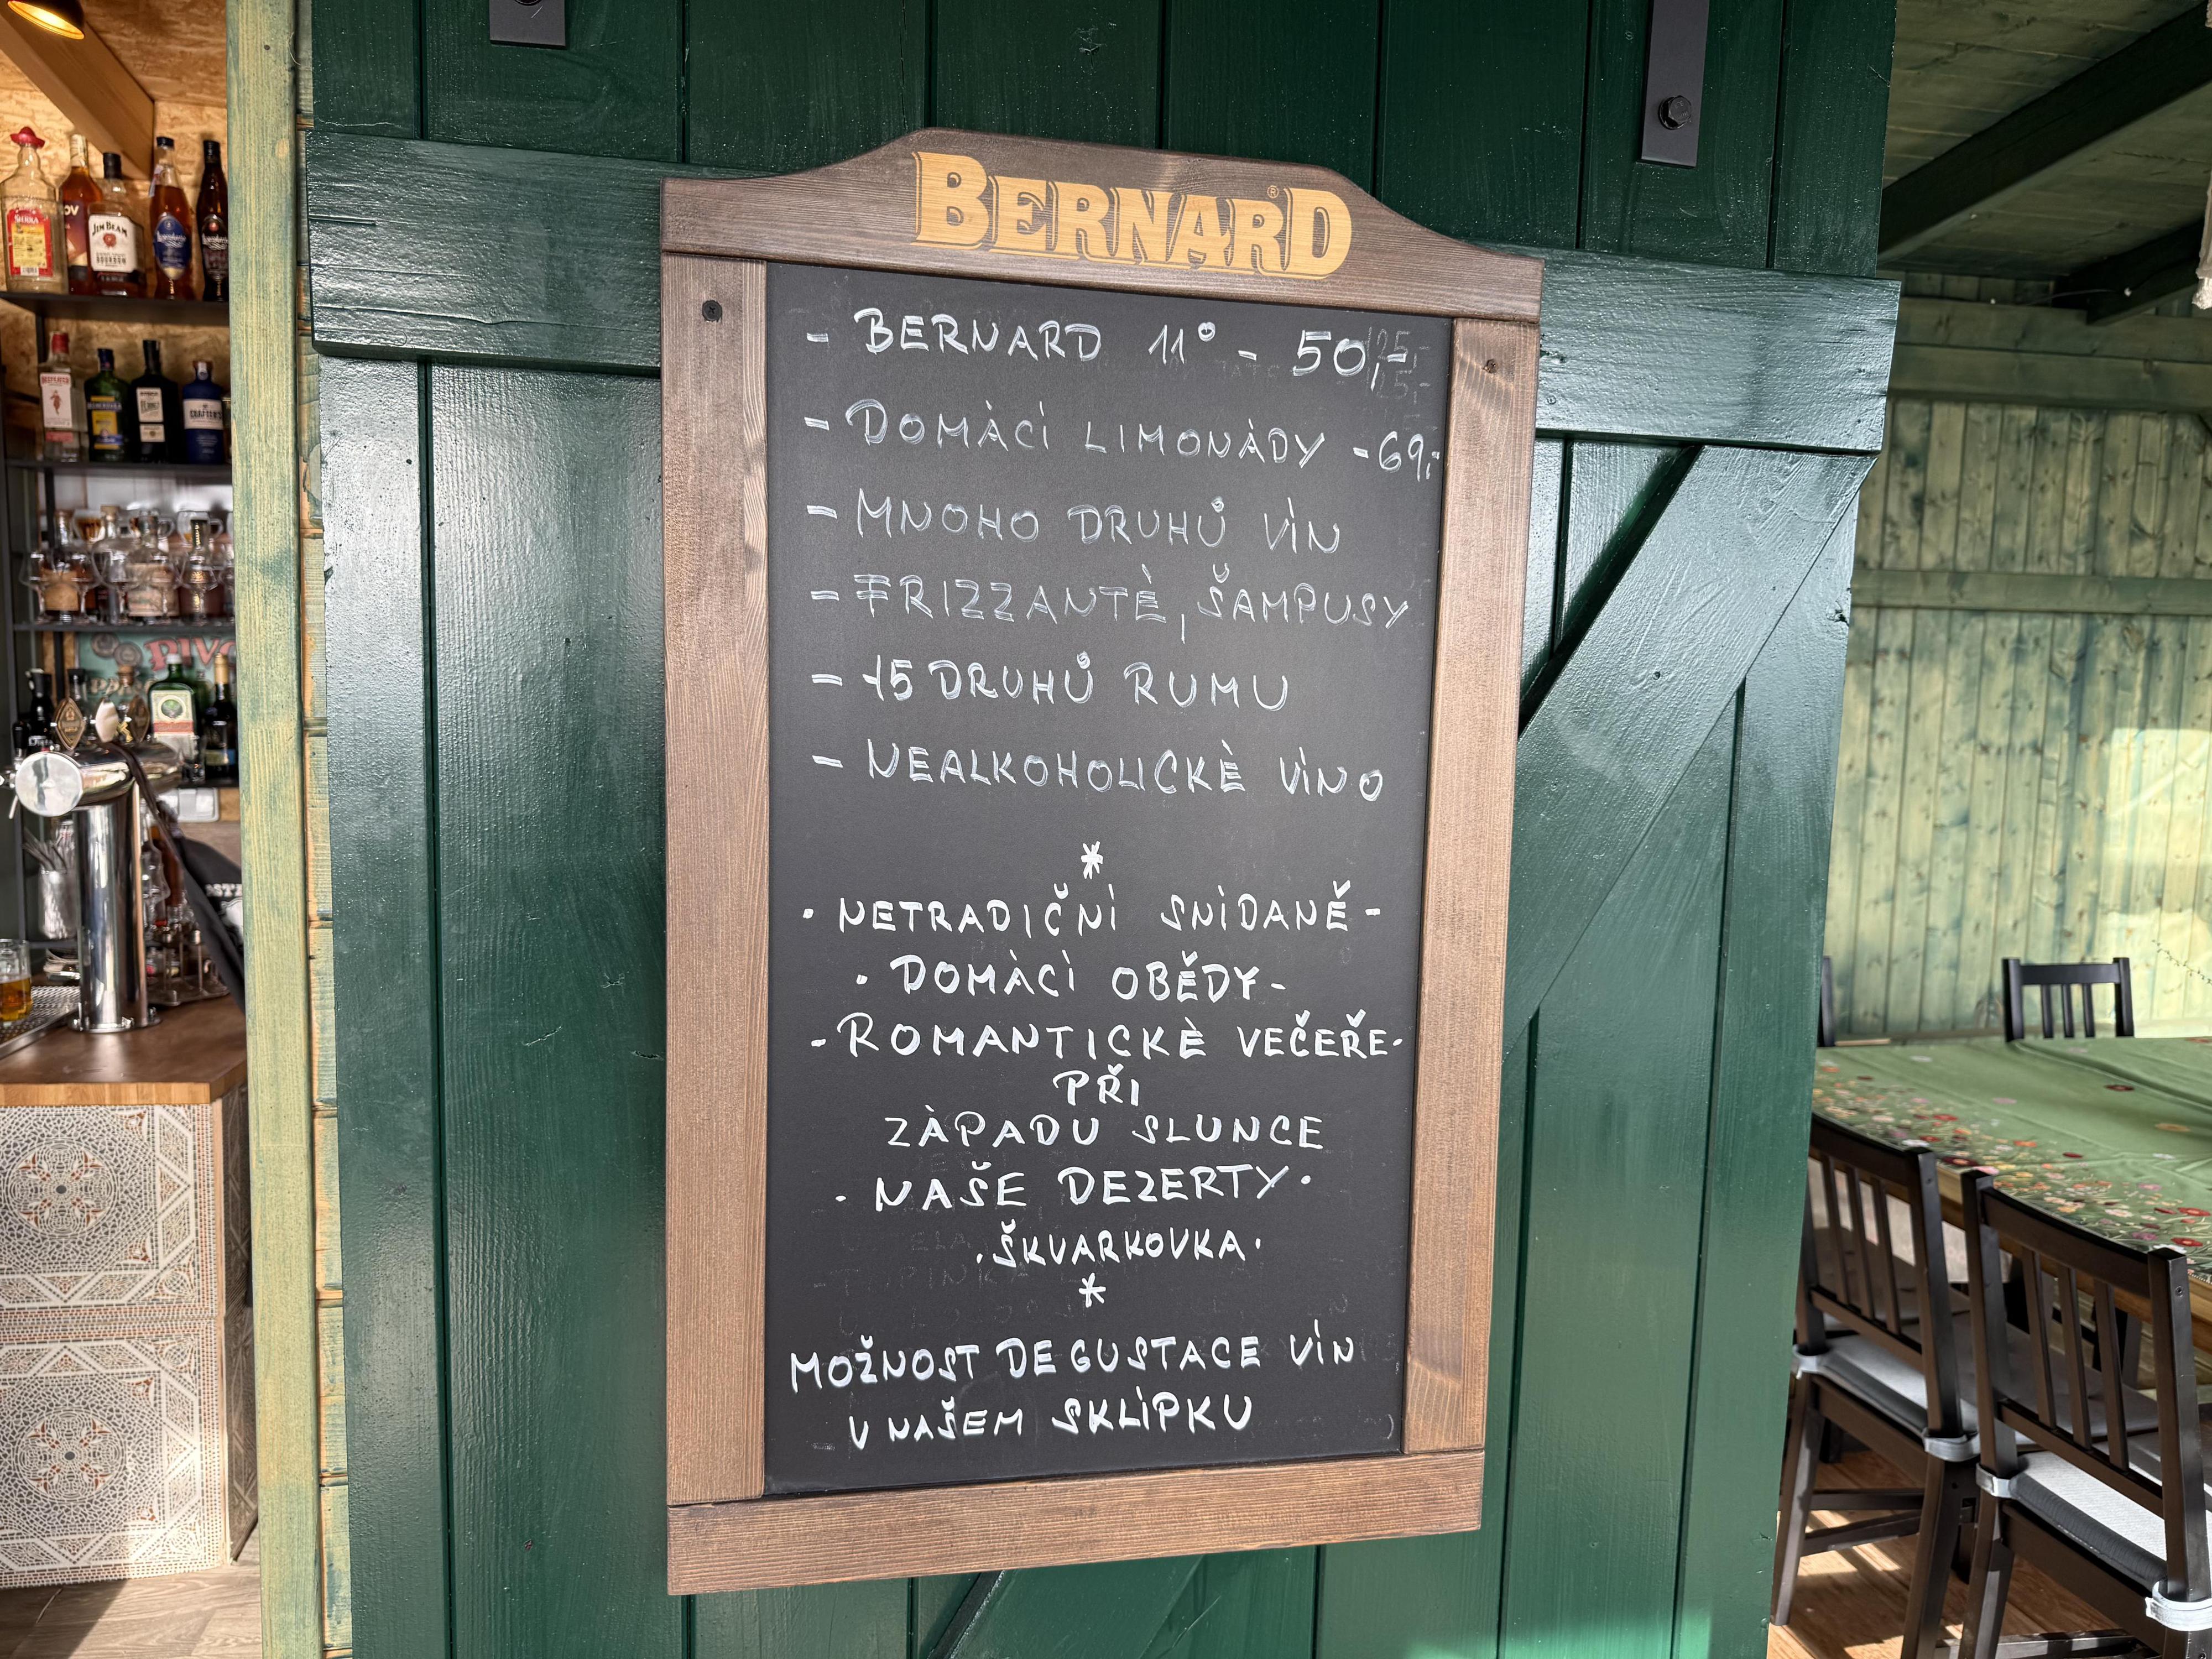 BERNARD®
- BERNARD 11° - 50,-
- DOMÀCÌ LIMONÀDY -69,-
- MNOHO DRUHŮ VÌN
- FRIZZANTÈ, ŠAMPUSY
- 15 DRUHŮ RUMU
- NEALKOHOLICKÈ VÌNO
*
· NETRADIČNÌ SNÌDANĚ -
· DOMÀCÌ OBĚDY -
- ROMANTICKÈ VEČEŘE ·
PŘI
ZÀPADU SLUNCE
· NAŠE DEZERTY ·
· ŠKVARKOVKA ·
*
MOŽNOST DEGUSTACE VÌN
V NAŠEM SKLÌPKU
JIM BEAM
BOURBON
PIVO